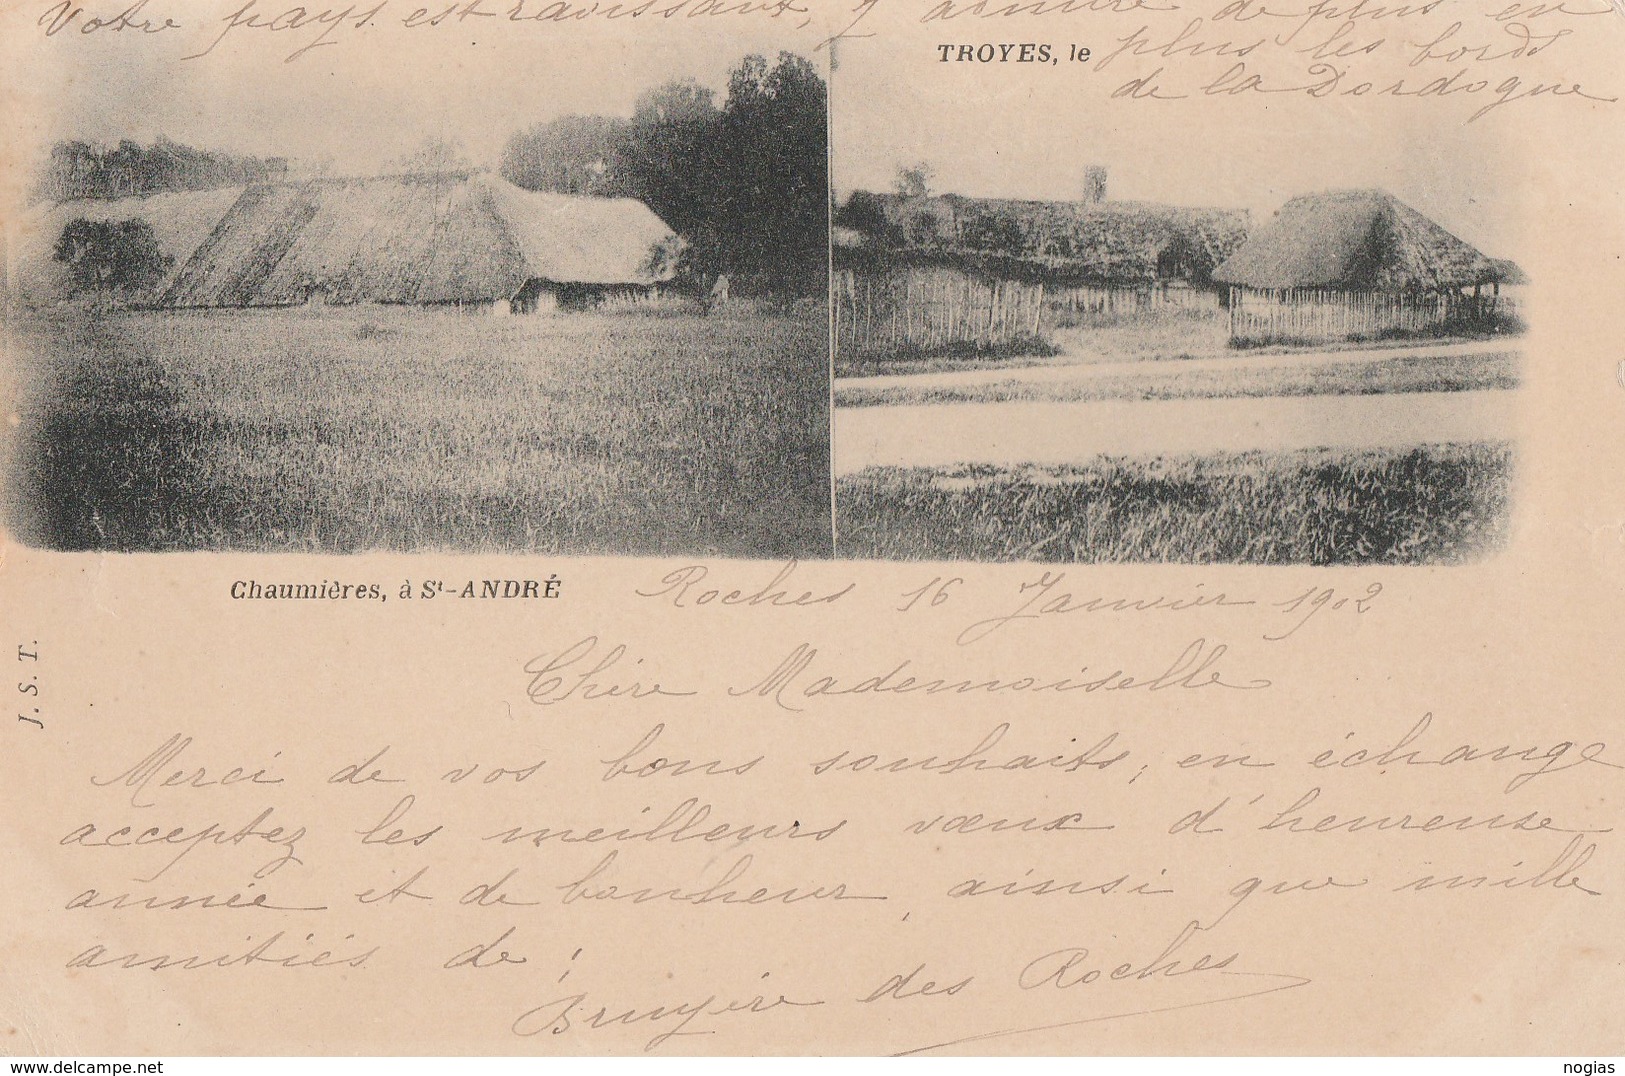 Votre pays est ravissant, j'admire de plus en
TROYES, le plus les bords
de la Dordogne
Chaumières, à St-ANDRÉ
Roches 16 Janvier 1902
J. S. T.
Chère Mademoiselle
Merci de vos bons souhaits, en échange
acceptez les meilleurs vœux d'heureuse
année et de bonheur, ainsi que mille
amitiés de :
Bruyère des Roches
www.delcampe.net
nogias